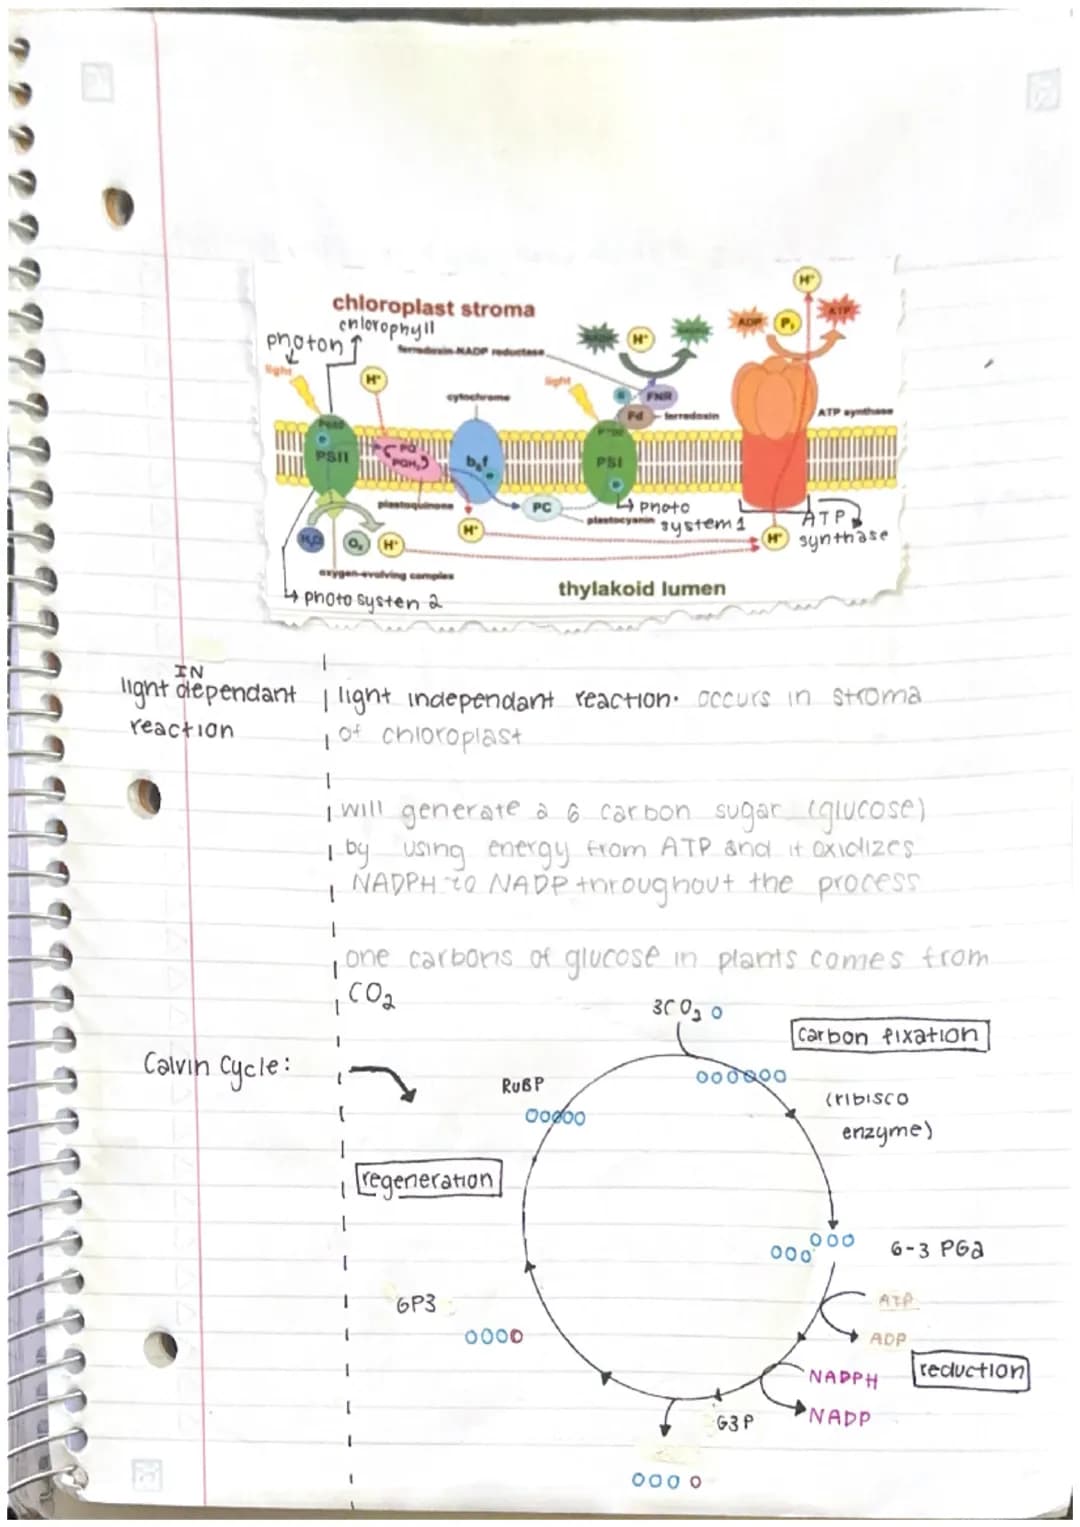 chloroplast stroma
chlorophyll
photon
light
ferredoxin-NADP reductase
H+
H+
cytochrome
light
H+
FNR
Fd
ferredoxin
ADP
Pi
ATP
H+
ATP synthase
P680
PSII
PQ
PQH2
b6f
PSI
plastoquinone
PC
plastocyanin
photo
system 1
ATP
synthase
H2O
O2
H+
H+
H+
oxygen-evolving complex
photo systen 2
thylakoid lumen
IN
light dependant
reaction
light independant reaction. occurs in stroma
of chloroplast
will generate a 6 carbon sugar (glucose)
by using energy from ATP and it oxidizes
NADPH to NADP throughout the process
one carbons of glucose in plants comes from
CO2
3CO2
carbon fixation
Calvin Cycle:
RuBP
(ribisco
enzyme)
regeneration
6-3 PGa
GP3
ATP
ADP
reduction
NADPH
NADP
G3P